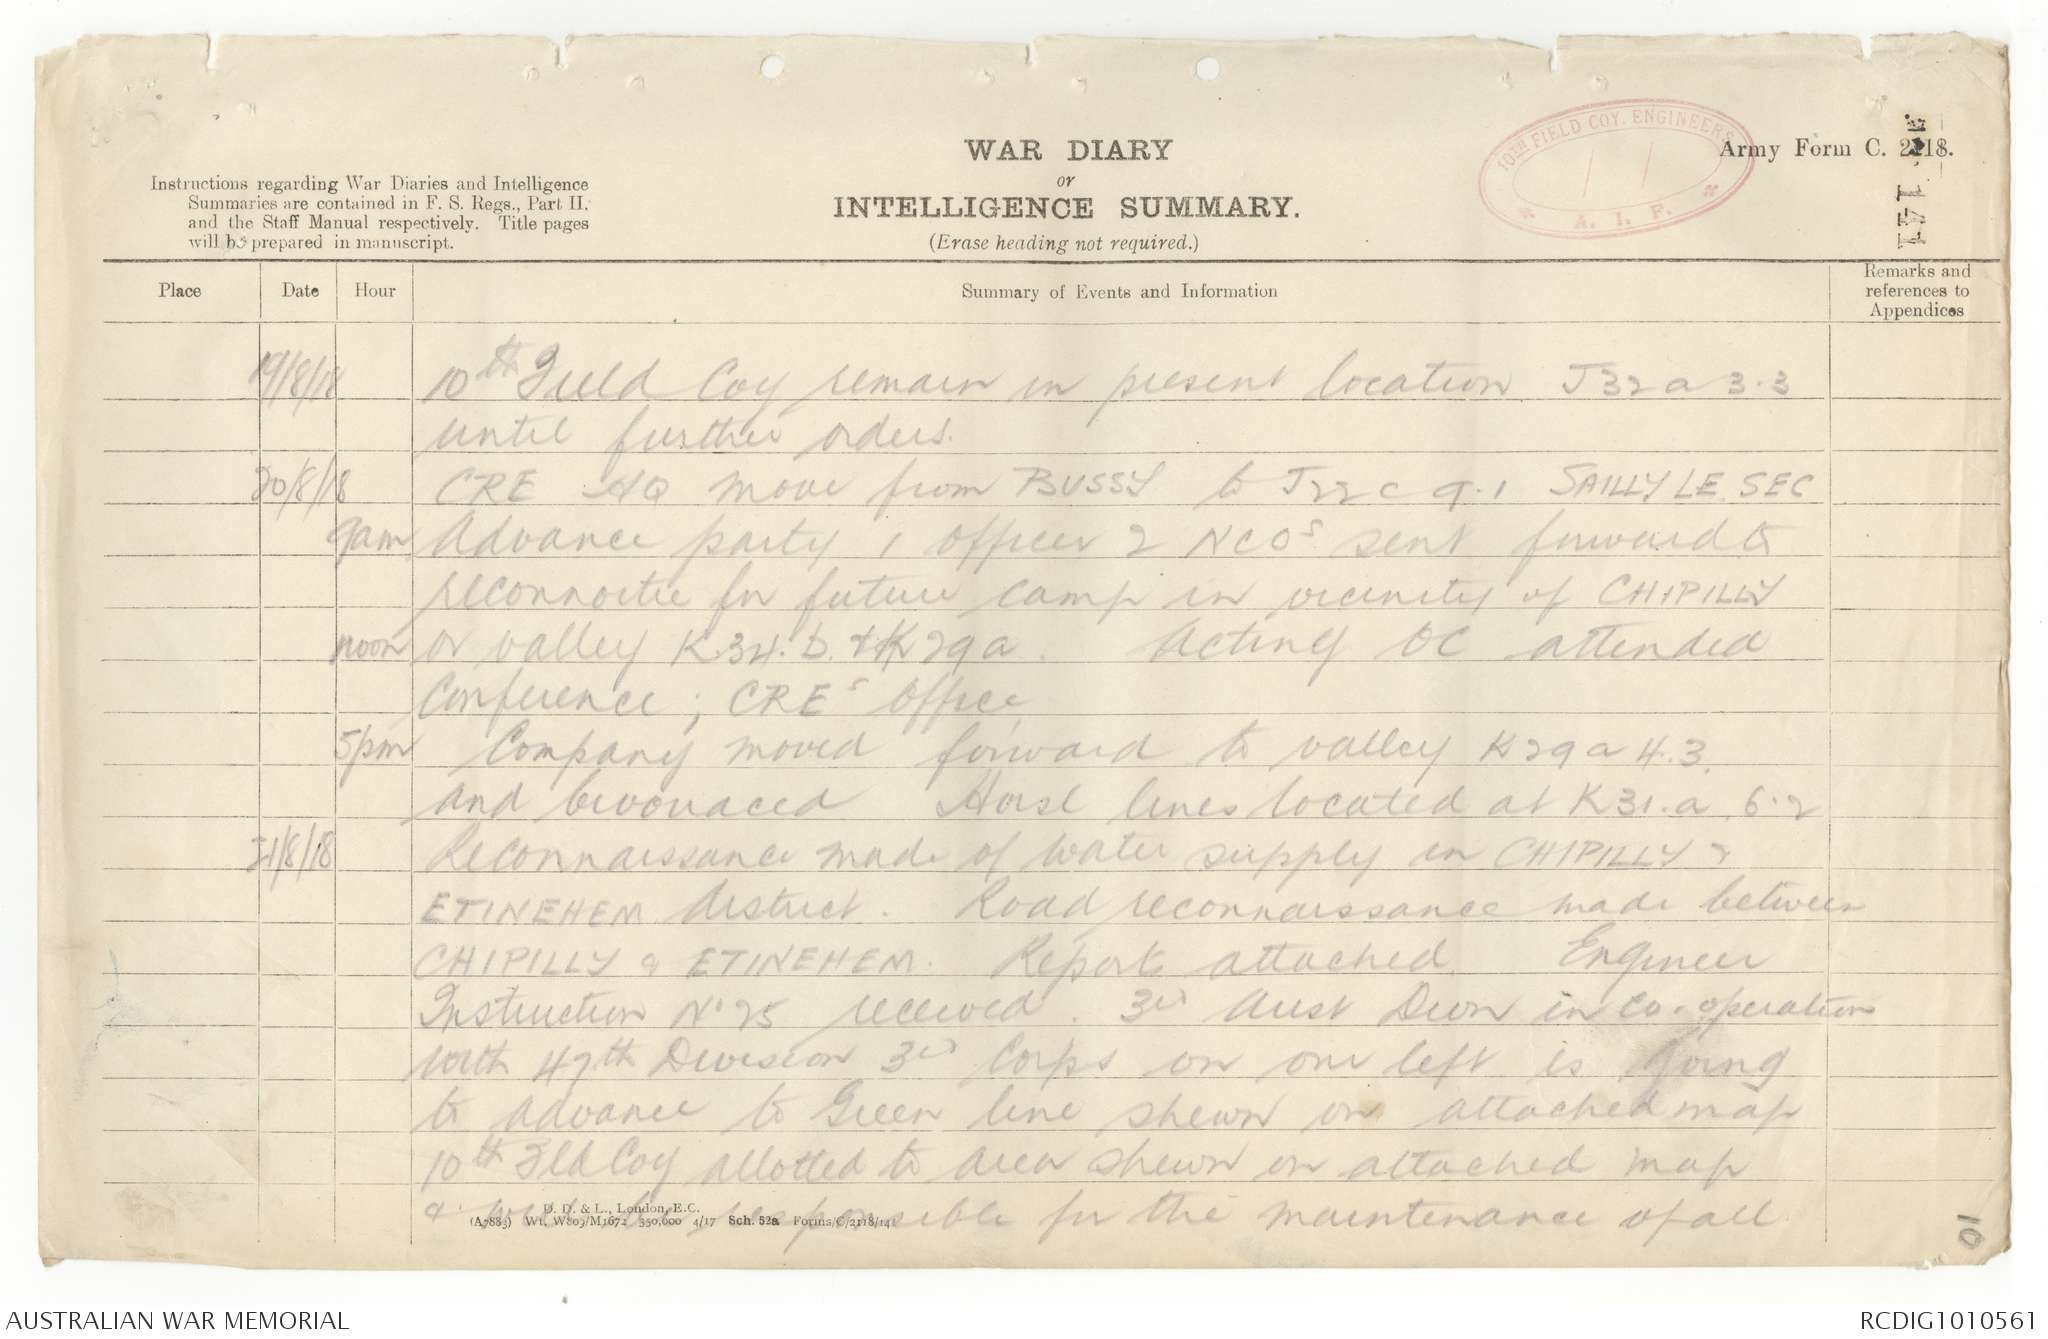 WAR DIARY
or
INTELLIGENCE SUMMARY.
(Erase heading not required.)
Instructions regarding War Diaries and Intelligence
Summaries are contained in F. S. Regs., Part II.
and the Staff Manual respectively. Title pages
will be prepared in manuscript.
10TH FIELD COY. ENGINEERS
A. I. F.
Army Form C. 2118.
Place
Date
Hour
Summary of Events and Information
Remarks and
references to
Appendices
19/8/18 10th Field Coy remain in present location J32a 3.3
until further orders.
20/8/18 CRE HQ move from BUSSY to J22c 9.1 SAILLY LE SEC
9am Advance party 1 officer 2 NCOs sent forward to
reconnoitre for future camp in vicinity of CHIPILLY
noon or valley K34.b. & K29a. Acting OC attended
Conference; CREs Office
5pm Company moved forward to valley K29a 4.3.
and bivouaced Horse lines located at K31.a.6.2
21/8/18 Reconnaissance made of water supply in CHIPILLY &
ETINEHEM district. Road reconnaissance made between
CHIPILLY & ETINEHEM. Reports attached. Engineer
Instruction No 25 received. 3rd Aust Divn in co-operation
with 47th Division 3rd Corps on our left is going
to advance to Green line shewn on attached map
10th Fld Coy allotted to area shewn on attached map
& will be responsible for the maintenance of all
D. D. & L., London, E.C.
(A7883) Wt. W809/M1672 350,000 4/17 Sch. 52a Forms/C/2118/14
10
AUSTRALIAN WAR MEMORIAL
RCDIG1010561